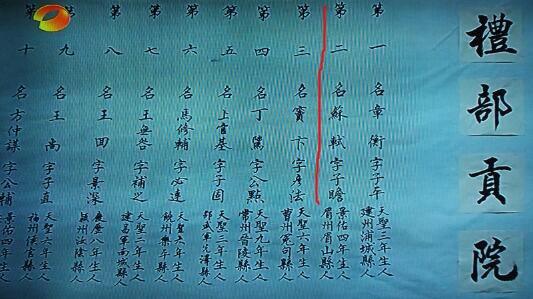 禮部貢院
第一名章衡字子平 天聖三年生人 建州浦城縣人
第二名蘇軾字子瞻 景佑四年生人 眉州眉山縣人
第三名竇卞字彥法 天聖六年生人 曹州冤句縣人
第四名丁騭字公點 天聖九年生人 常州晉陵縣人
第五名上官基字子固 天聖三年生人 邵武軍光澤縣人
第六名馬修輔字必達 天聖六年生人 饒州樂平縣人
第七名王無咎字補之 天聖二年生人 建昌軍南城縣人
第八名王回字景深 慶歷八年生人 潁州汝陰縣人
第九名王尚字子直 天聖六年生人 福州侯官縣人
第十名方仲謀字公輔 景佑四年生人